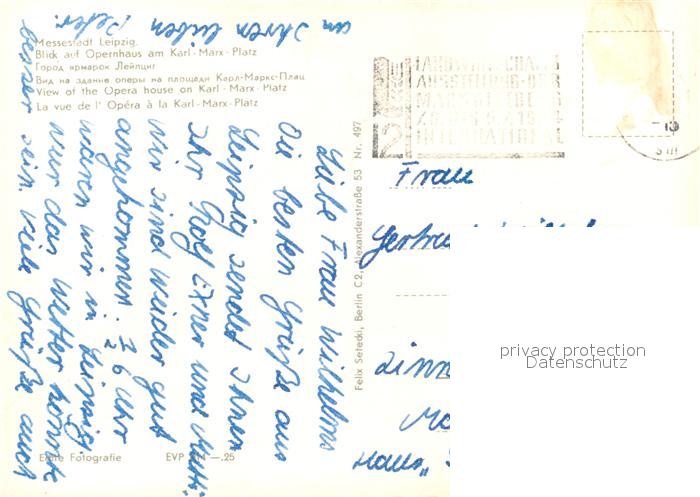 Messestadt Leipzig.
Blick auf Opernhaus am Karl-Marx-Platz
Город ярмарок Лейпциг
Вид на здание оперы на площади Карл-Маркс-Плац
View of the Opera house on Karl-Marx-Platz
La vue de l' Opéra à la Karl-Marx-Platz
Liebe Frau Wilhelms
Die besten Grüße aus
Leipzig sendet Ihnen
Ihr und Mutti.
Wir sind wieder gut
angekommen. 6 Uhr
waren wir in Leipzig.
Nur das Wetter könnte
besser sein. Viele Grüße auch
an Ihren lieben
Peter.
Echte Fotografie
EVP -.25
Felix Setecki, Berlin C2, Alexanderstraße 53 Nr. 497
INTERNATIONAL
Frau
privacy protection
Datenschutz
Haus